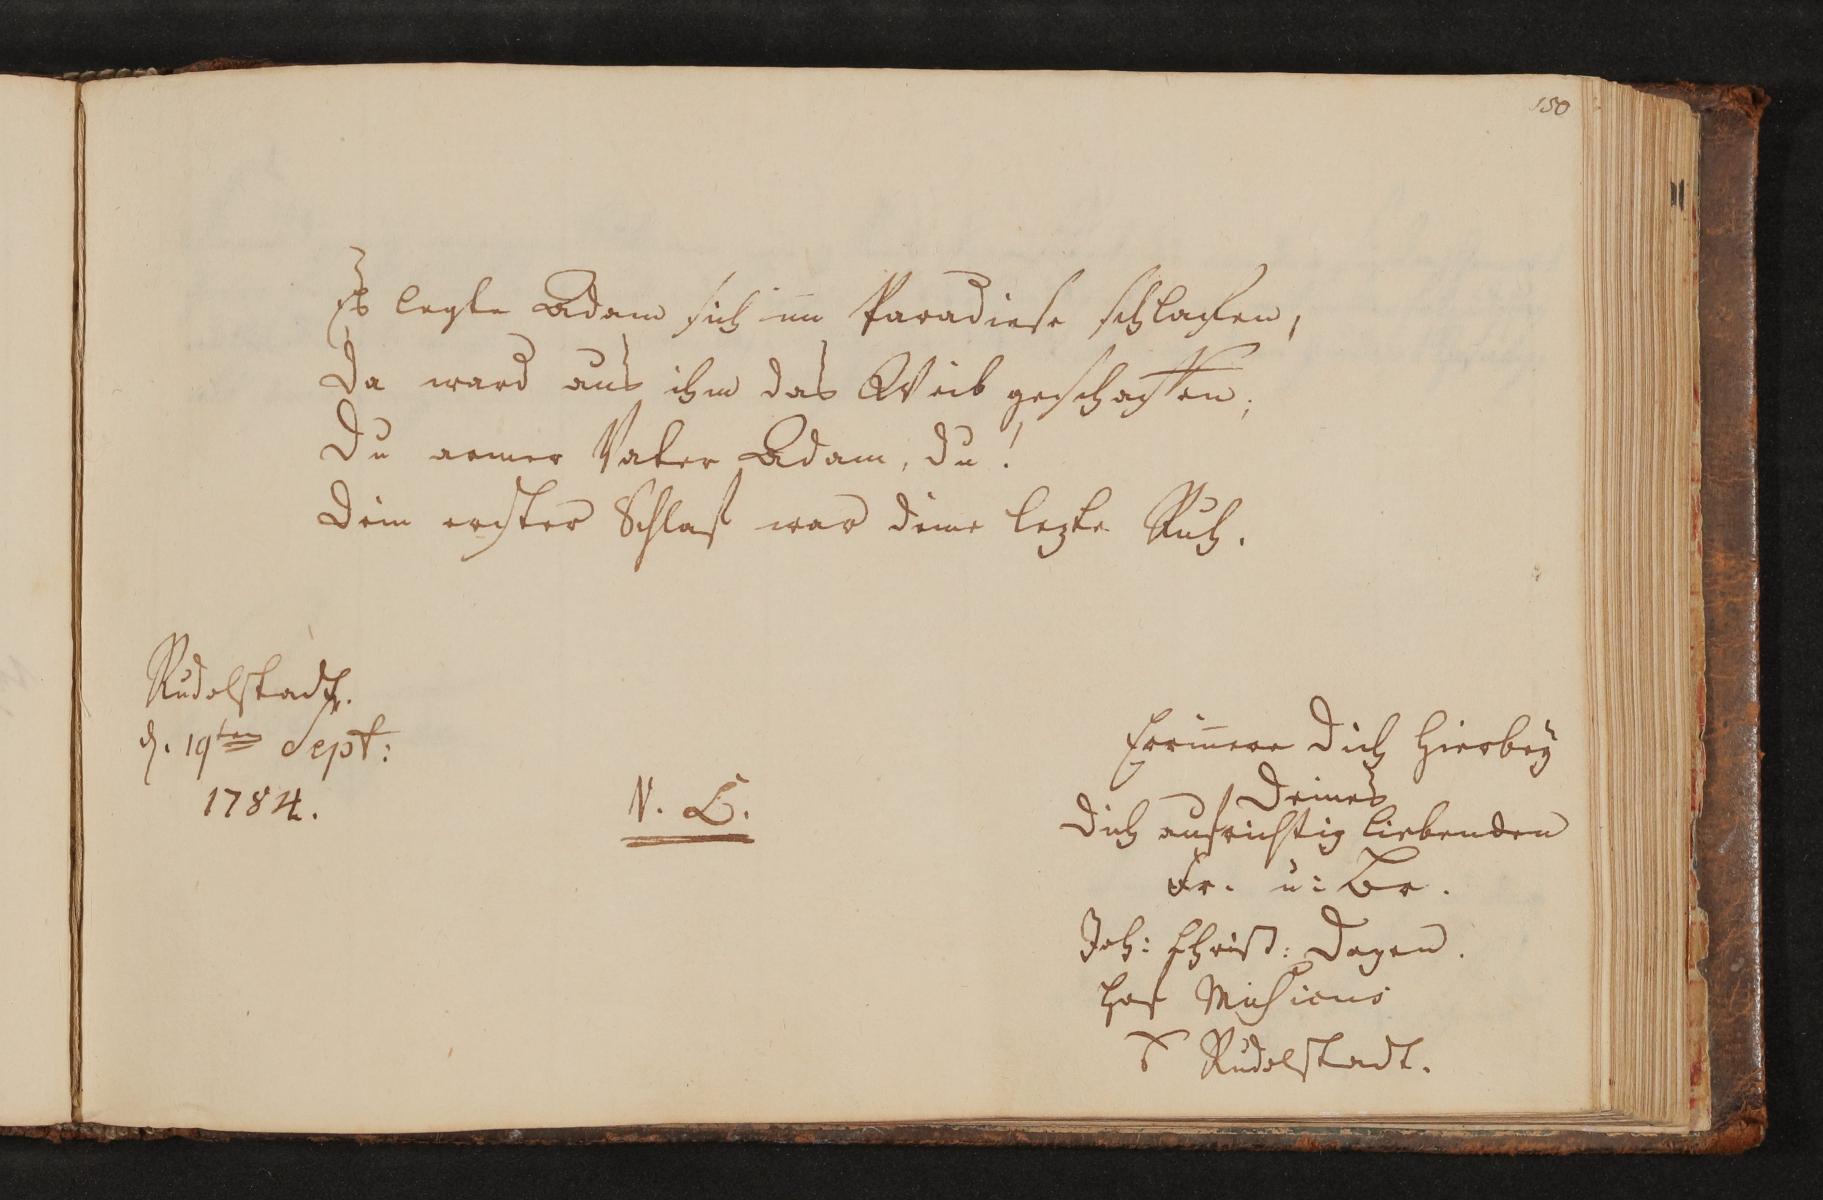 150
Es legte Adam sich im Paradiese schlafen,
Da ward aus ihm das Weib geschaffen;
Du armer Vater Adam, du!
Dein erster Schlaf war deine lezte Ruh.
Rudolstadt.
d. 19ten Sept:
1784.
N. L.
Erinnere Dich hierbey
Deines
Dich aufrichtig liebenden
Fr. u: Br.
Joh: Christ: Degen.
Hof Musicus
Rudolstadt.